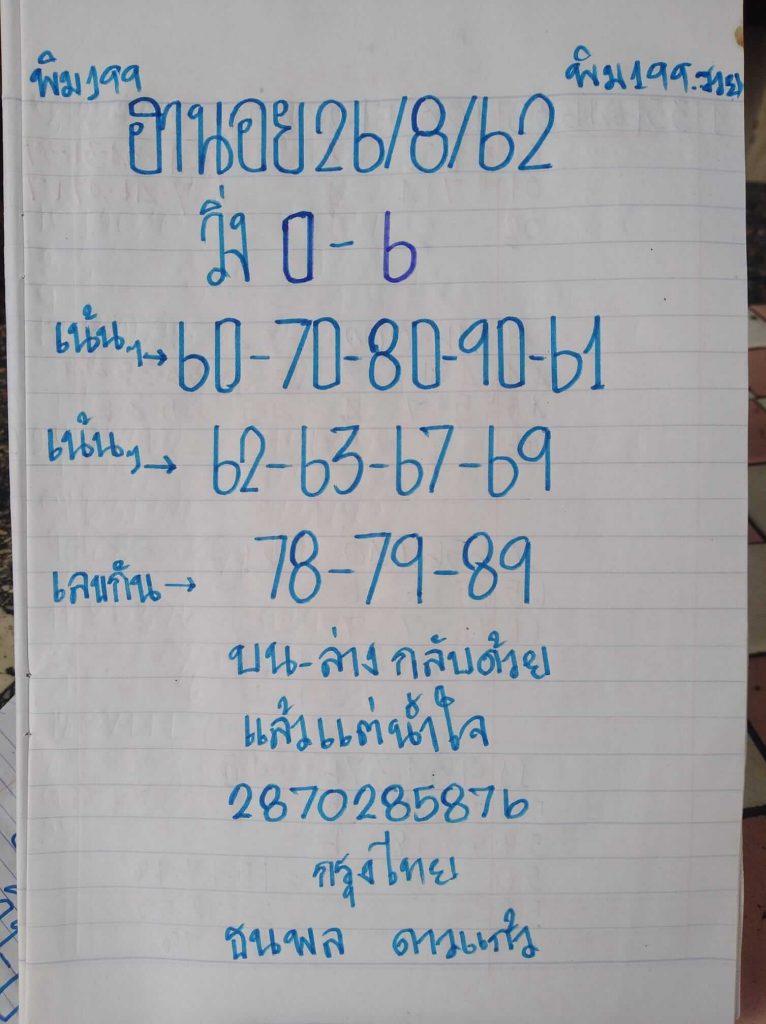 พิม199 พิม199.รวย
ฮานอย26/8/62
วิ่ง 0-6
เน้นๆ→60-70-80-90-61
เน้นๆ→ 62-63-67-69
เลขกัน→ 78-79-89
บน-ล่าง กลับด้วย
แล้วแต่น้ำใจ
2870285876
กรุงไทย
ธนพล ดาวแก้ว